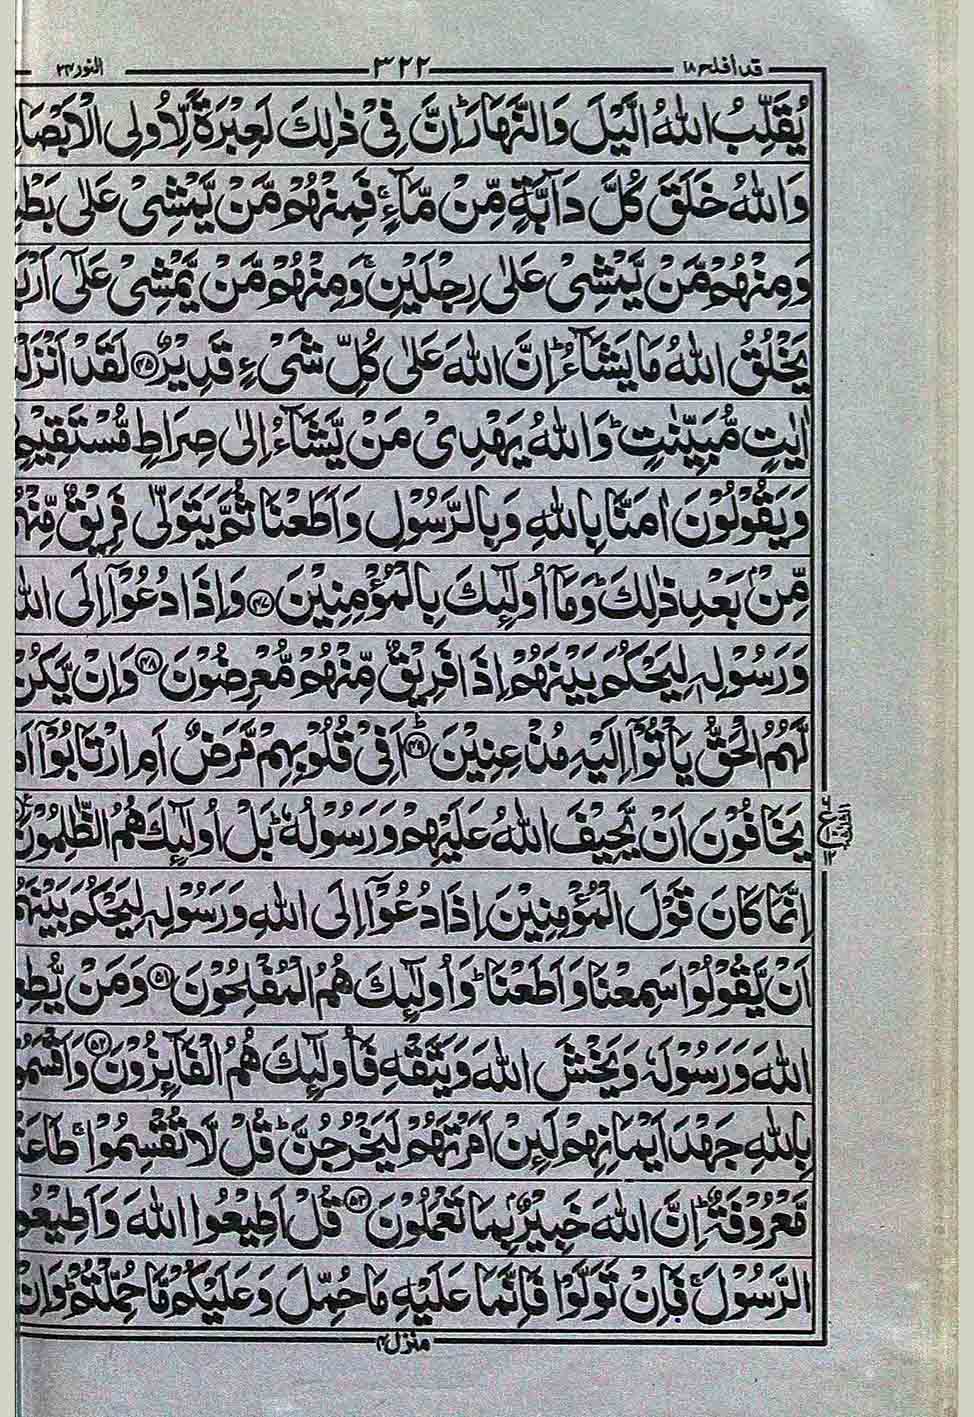 قد افلح ۱۸ ۳۲۲ النور ۲۴
يُقَلِّبُ اللّٰهُ الَّيْلَ وَالنَّهَارَ ؕ اِنَّ فِيْ ذٰلِكَ لَعِبْرَةً لِّاُولِي الْاَبْصَارِ
وَاللّٰهُ خَلَقَ كُلَّ دَآبَّةٍ مِّنْ مَّآءٍ ۚ فَمِنْهُمْ مَّنْ يَّمْشِيْ عَلٰى
وَمِنْهُمْ مَّنْ يَّمْشِيْ عَلٰى رِجْلَيْنِ ۚ وَمِنْهُمْ مَّنْ يَّمْشِيْ عَلٰٓى
يَخْلُقُ اللّٰهُ مَا يَشَآءُ ؕ اِنَّ اللّٰهَ عَلٰى كُلِّ شَيْءٍ قَدِيْرٌ ۴۵ لَقَدْ
اٰيٰتٍ مُّبَيِّنٰتٍ ؕ وَاللّٰهُ يَهْدِيْ مَنْ يَّشَآءُ اِلٰى صِرَاطٍ مُّسْتَقِيْمٍ
وَيَقُوْلُوْنَ اٰمَنَّا بِاللّٰهِ وَبِالرَّسُوْلِ وَاَطَعْنَا ثُمَّ يَتَوَلّٰى فَرِيْقٌ مِّنْهُمْ
مِّنْۢ بَعْدِ ذٰلِكَ ؕ وَمَآ اُولٰٓئِكَ بِالْمُؤْمِنِيْنَ ۴۷ وَاِذَا دُعُوْٓا اِلَى اللّٰهِ
وَرَسُوْلِهٖ لِيَحْكُمَ بَيْنَهُمْ اِذَا فَرِيْقٌ مِّنْهُمْ مُّعْرِضُوْنَ ۴۸ وَاِنْ يَّكُنْ
لَّهُمُ الْحَقُّ يَاْتُوْٓا اِلَيْهِ مُذْعِنِيْنَ ۴۹ؕ اَفِيْ قُلُوْبِهِمْ مَّرَضٌ اَمِ ارْتَابُوْٓا اَمْ
يَخَافُوْنَ اَنْ يَّحِيْفَ اللّٰهُ عَلَيْهِمْ وَرَسُوْلُهٗ ؕ بَلْ اُولٰٓئِكَ هُمُ الظّٰلِمُوْنَ
اِنَّمَا كَانَ قَوْلَ الْمُؤْمِنِيْنَ اِذَا دُعُوْٓا اِلَى اللّٰهِ وَرَسُوْلِهٖ لِيَحْكُمَ بَيْنَهُمْ
اَنْ يَّقُوْلُوْا سَمِعْنَا وَاَطَعْنَا ؕ وَاُولٰٓئِكَ هُمُ الْمُفْلِحُوْنَ ۵۱ وَمَنْ يُّطِعِ
اللّٰهَ وَرَسُوْلَهٗ وَيَخْشَ اللّٰهَ وَيَتَّقْهِ فَاُولٰٓئِكَ هُمُ الْفَآئِزُوْنَ ۵۲ وَاَقْسَمُوْا
بِاللّٰهِ جَهْدَ اَيْمَانِهِمْ لَئِنْ اَمَرْتَهُمْ لَيَخْرُجُنَّ ؕ قُلْ لَّا تُقْسِمُوْا ۚ
مَّعْرُوْفَةٌ ؕ اِنَّ اللّٰهَ خَبِيْرٌۢ بِمَا تَعْمَلُوْنَ ۵۳ قُلْ اَطِيْعُوا اللّٰهَ وَاَطِيْعُوا
الرَّسُوْلَ ۚ فَاِنْ تَوَلَّوْا فَاِنَّمَا عَلَيْهِ مَا حُمِّلَ وَعَلَيْكُمْ مَّا حُمِّلْتُمْ ؕ وَاِنْ
منزل ۴